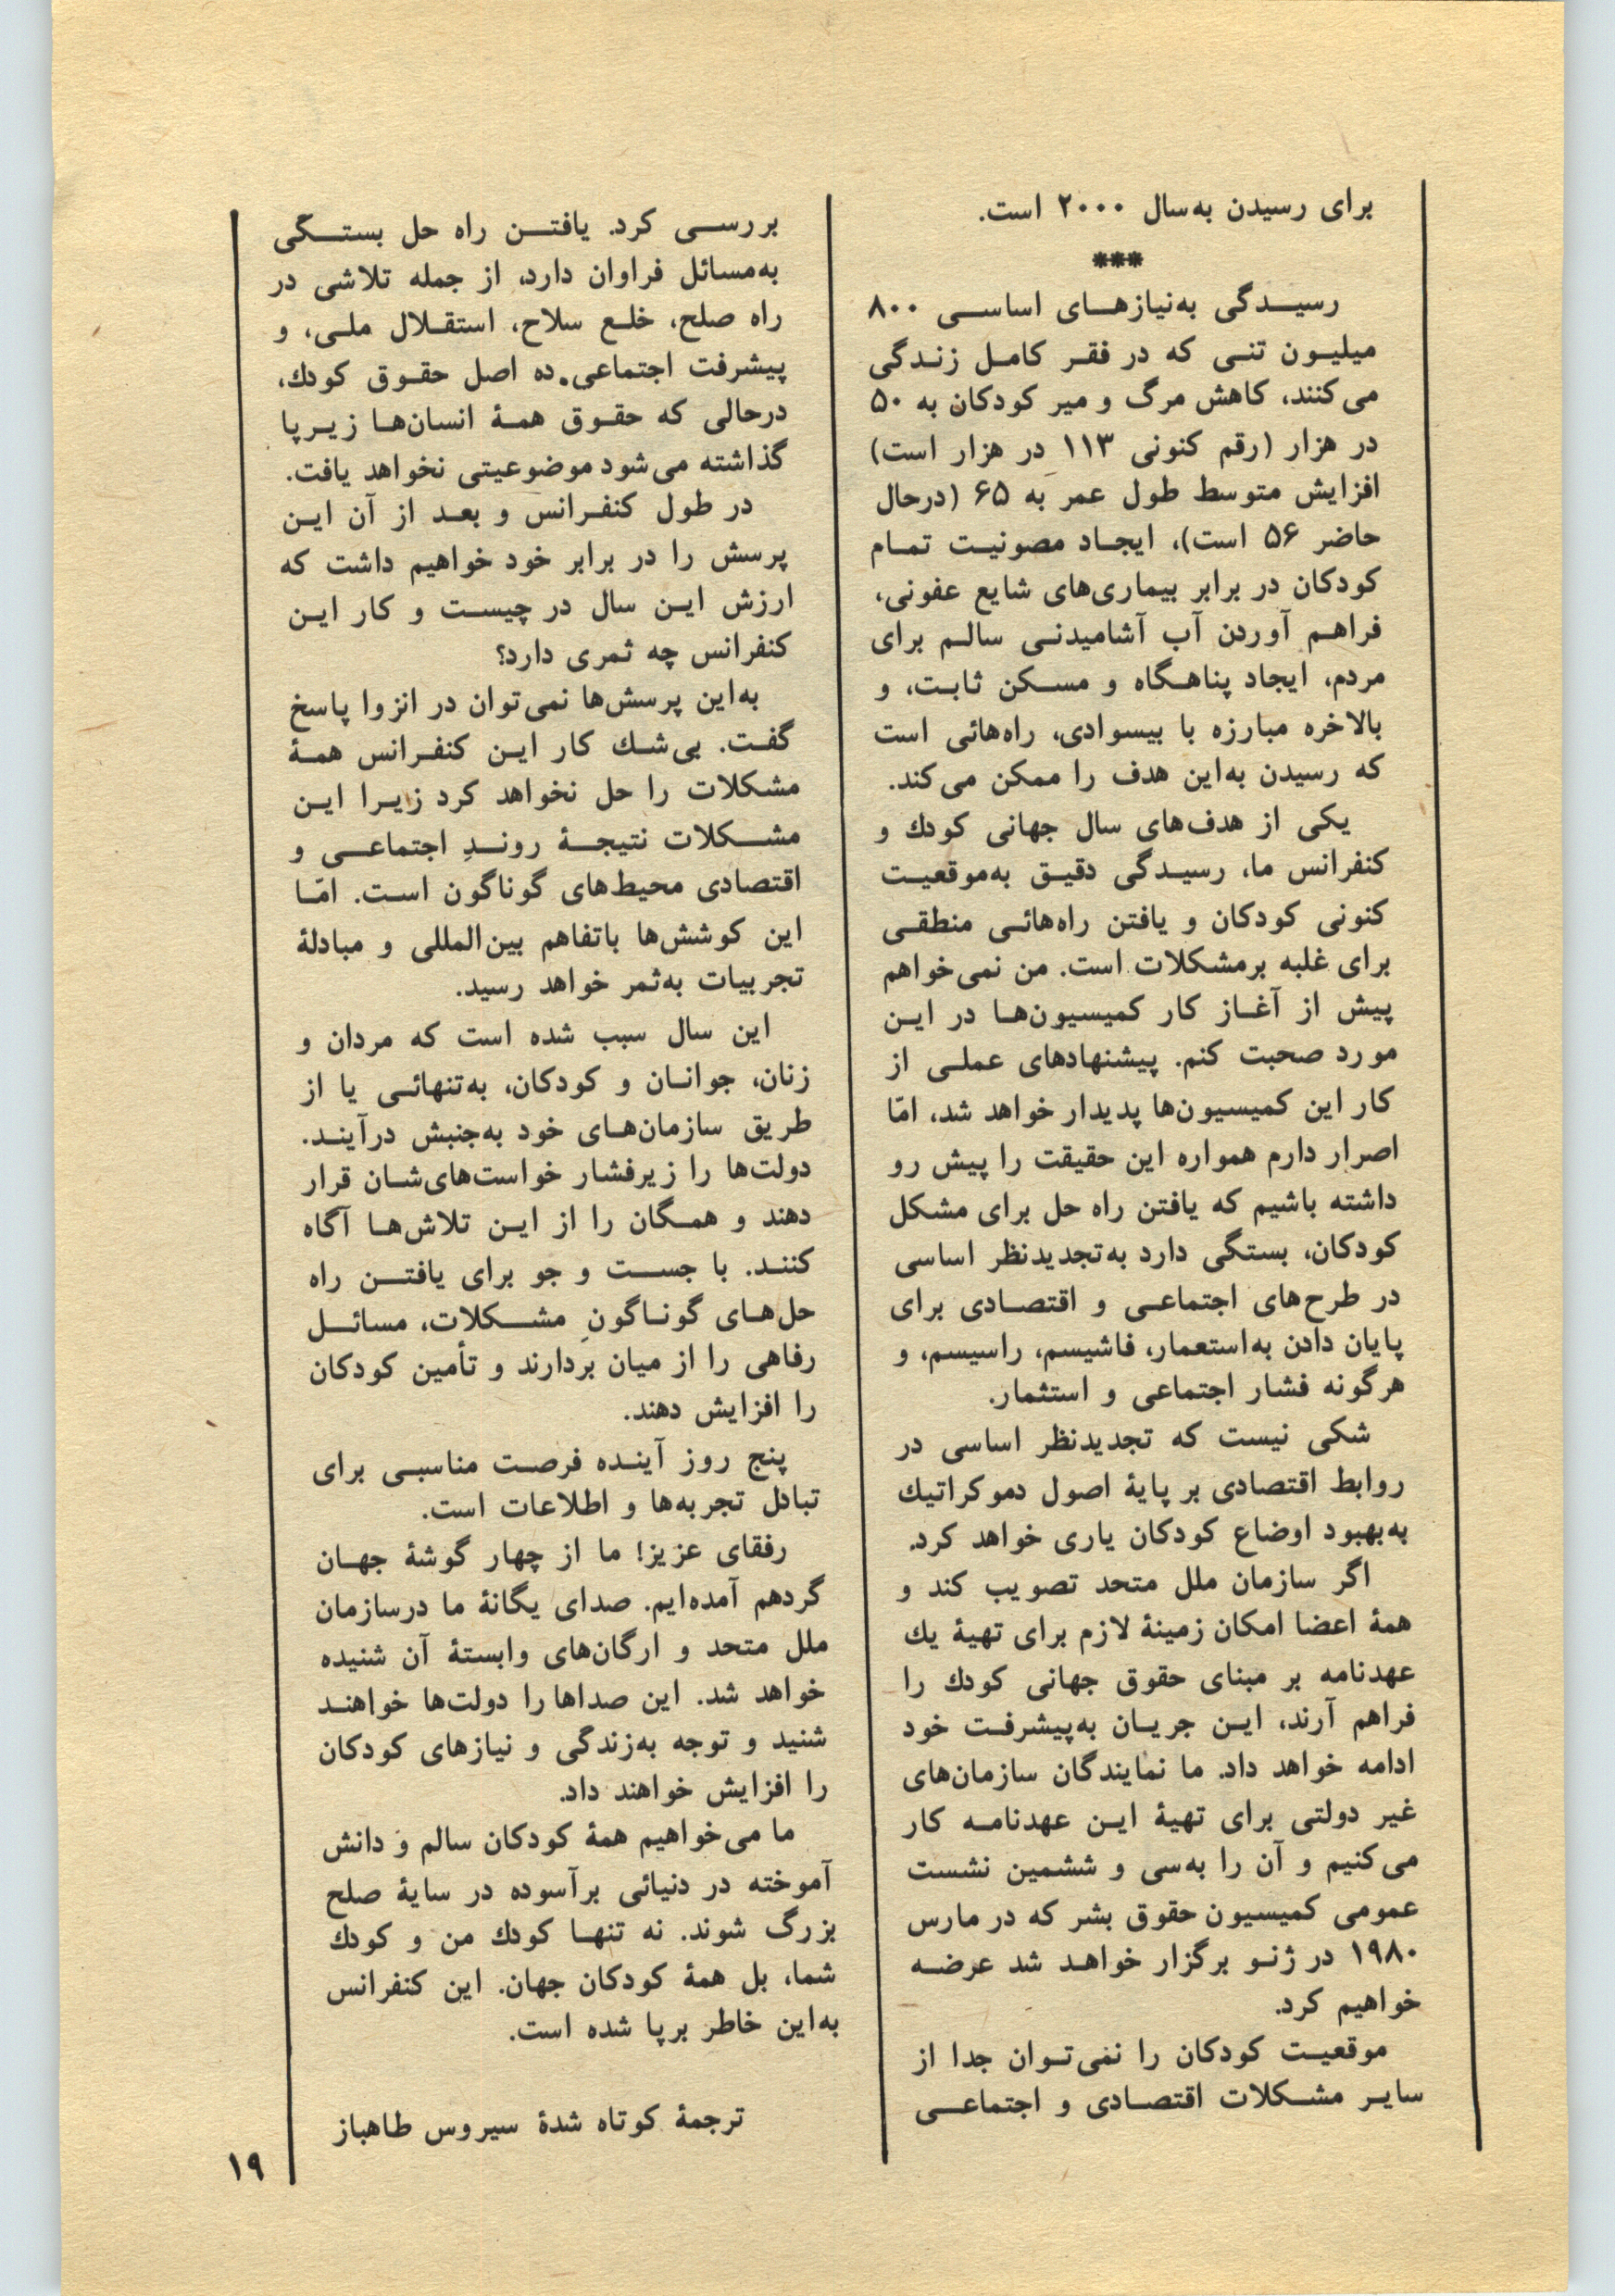 برای رسیدن به‌سال ۲۰۰۰ است.
***
رسیدگی به‌نیازهای اساسی ۸۰۰
میلیون تنی که در فقر کامل زندگی
می‌کنند، کاهش مرگ و میر کودکان به ۵۰
در هزار (رقم کنونی ۱۱۳ در هزار است)
افزایش متوسط طول عمر به ۶۵ (درحال
حاضر ۵۶ است)، ایجاد مصونیت تمام
کودکان در برابر بیماری‌های شایع عفونی،
فراهم آوردن آب آشامیدنی سالم برای
مردم، ایجاد پناهگاه و مسکن ثابت، و
بالاخره مبارزه با بیسوادی، راه‌هائی است
که رسیدن به‌این هدف را ممکن می‌کند.
یکی از هدف‌های سال جهانی کودك و
کنفرانس ما، رسیدگی دقیق به‌موقعیت
کنونی کودکان و یافتن راه‌هائی منطقی
برای غلبه برمشکلات است. من نمی‌خواهم
پیش از آغاز کار کمیسیون‌ها در این
مورد صحبت کنم. پیشنهادهای عملی از
کار این کمیسیون‌ها پدیدار خواهد شد، امّا
اصرار دارم همواره این حقیقت را پیش رو
داشته باشیم که یافتن راه حل برای مشکل
کودکان، بستگی دارد به‌تجدیدنظر اساسی
در طرح‌های اجتماعی و اقتصادی برای
پایان دادن به‌استعمار، فاشیسم، راسیسم، و
هرگونه فشار اجتماعی و استثمار.
شکی نیست که تجدیدنظر اساسی در
روابط اقتصادی بر پایهٔ اصول دموکراتیك
به‌بهبود اوضاع کودکان یاری خواهد کرد.
اگر سازمان ملل متحد تصویب کند و
همهٔ اعضا امکان زمینهٔ لازم برای تهیهٔ یك
عهدنامه بر مبنای حقوق جهانی کودك را
فراهم آرند، این جریان به‌پیشرفت خود
ادامه خواهد داد. ما نمایندگان سازمان‌های
غیر دولتی برای تهیهٔ این عهدنامه کار
می‌کنیم و آن را به‌سی و ششمین نشست
عمومی کمیسیون حقوق بشر که در مارس
۱۹۸۰ در ژنو برگزار خواهد شد عرضه
خواهیم کرد.
موقعیت کودکان را نمی‌توان جدا از
سایر مشکلات اقتصادی و اجتماعی
بررسی کرد. یافتن راه حل بستگی
به‌مسائل فراوان دارد، از جمله تلاشی در
راه صلح، خلع سلاح، استقلال ملی، و
پیشرفت اجتماعی. ده اصل حقوق کودك،
درحالی که حقوق همهٔ انسان‌ها زیرپا
گذاشته می‌شود موضوعیتی نخواهد یافت.
در طول کنفرانس و بعد از آن این
پرسش را در برابر خود خواهیم داشت که
ارزش این سال در چیست و کار این
کنفرانس چه ثمری دارد؟
به‌این پرسش‌ها نمی‌توان در انزوا پاسخ
گفت. بی‌شك کار این کنفرانس همهٔ
مشکلات را حل نخواهد کرد زیرا این
مشکلات نتیجهٔ روندِ اجتماعی و
اقتصادی محیط‌های گوناگون است. امّا
این کوشش‌ها باتفاهم بین‌المللی و مبادلهٔ
تجربیات به‌ثمر خواهد رسید.
این سال سبب شده است که مردان و
زنان، جوانان و کودکان، به‌تنهائی یا از
طریق سازمان‌های خود به‌جنبش درآیند.
دولت‌ها را زیرفشار خواست‌های‌شان قرار
دهند و همگان را از این تلاش‌ها آگاه
کنند. با جست و جو برای یافتن راه
حل‌های گوناگونِ مشکلات، مسائل
رفاهی را از میان بردارند و تأمین کودکان
را افزایش دهند.
پنج روز آینده فرصت مناسبی برای
تبادل تجربه‌ها و اطلاعات است.
رفقای عزیز! ما از چهار گوشهٔ جهان
گردهم آمده‌ایم. صدای یگانهٔ ما درسازمان
ملل متحد و ارگان‌های وابستهٔ آن شنیده
خواهد شد. این صداها را دولت‌ها خواهند
شنید و توجه به‌زندگی و نیازهای کودکان
را افزایش خواهند داد.
ما می‌خواهیم همهٔ کودکان سالم و دانش
آموخته در دنیائی برآسوده در سایهٔ صلح
بزرگ شوند. نه تنها کودك من و کودك
شما، بل همهٔ کودکان جهان. این کنفرانس
به‌این خاطر برپا شده است.
ترجمهٔ کوتاه شدهٔ سیروس طاهباز
۱۹